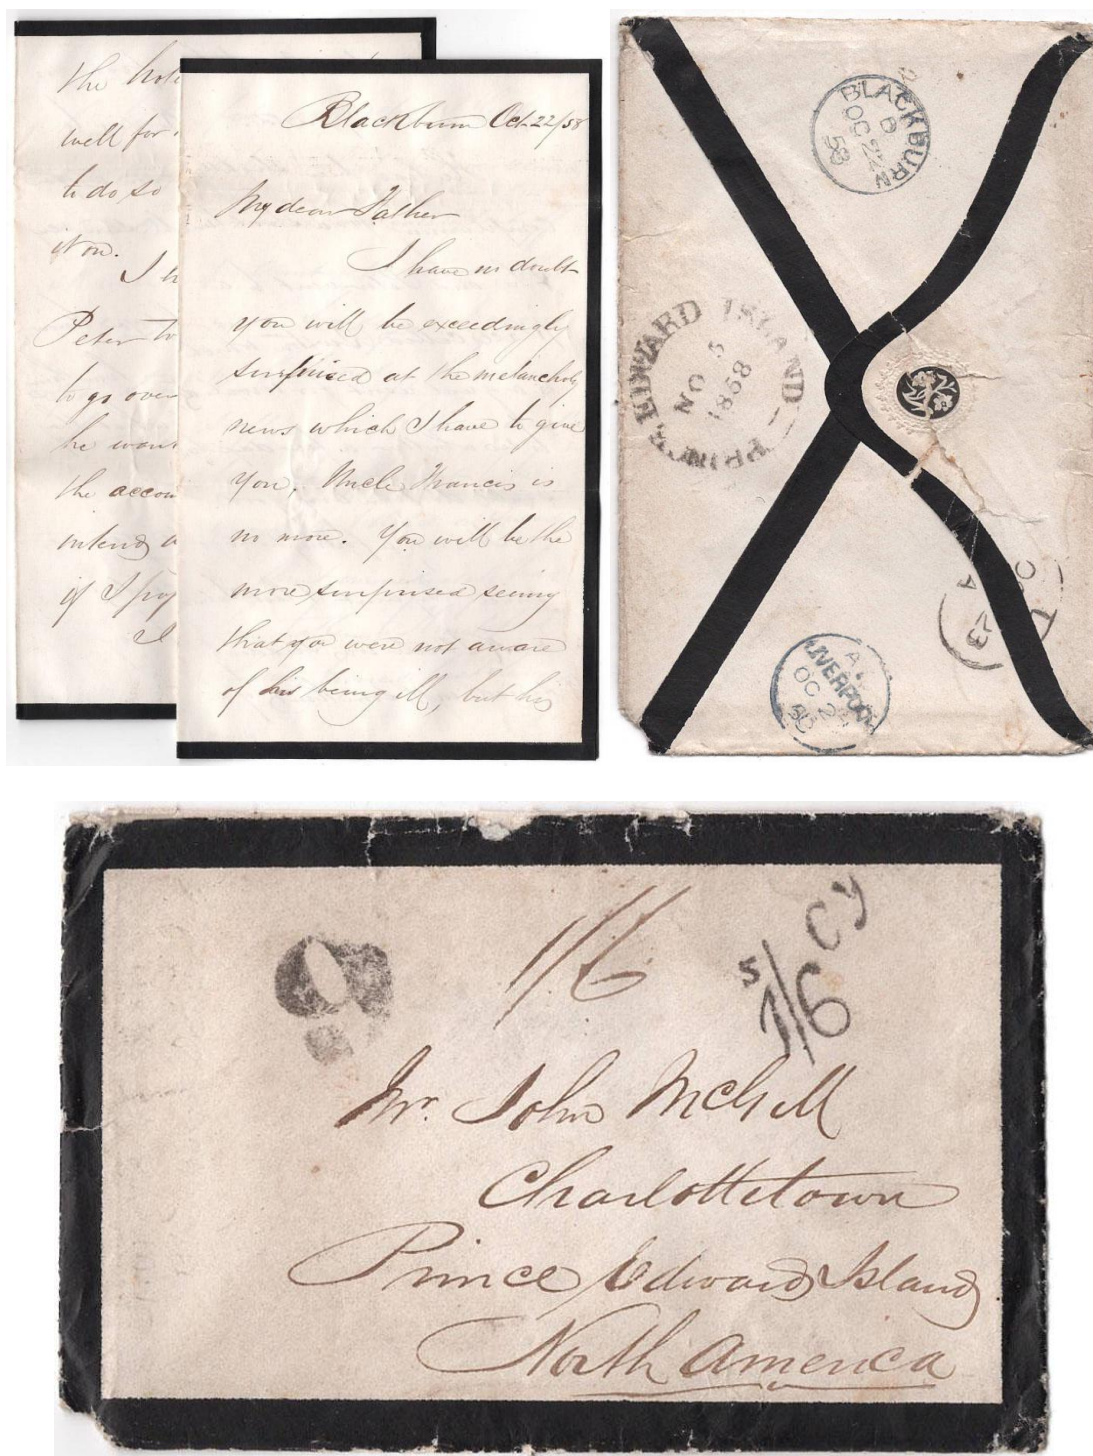 the hote
well for
to do so
it on.
I h
Peter to
to go over
he want
the accou
intends a
if I pay
I
Blackburn Oct 22/58
My dear Father
I have no doubt
you will be exceedingly
surprised at the melancholy
news which I have to give
you, Uncle Francis is
no more. You will be the
more surprised seeing
that you were not aware
of his being ill, but his
BLACKBURN
OC 24
58
PRINCE EDWARD ISLAND
NO 5
1858
LIVERPOOL
A
OC 2
58
1/6
s 1/6 cy
Mr. John McGill
Charlottetown
Prince Edward Island
North America